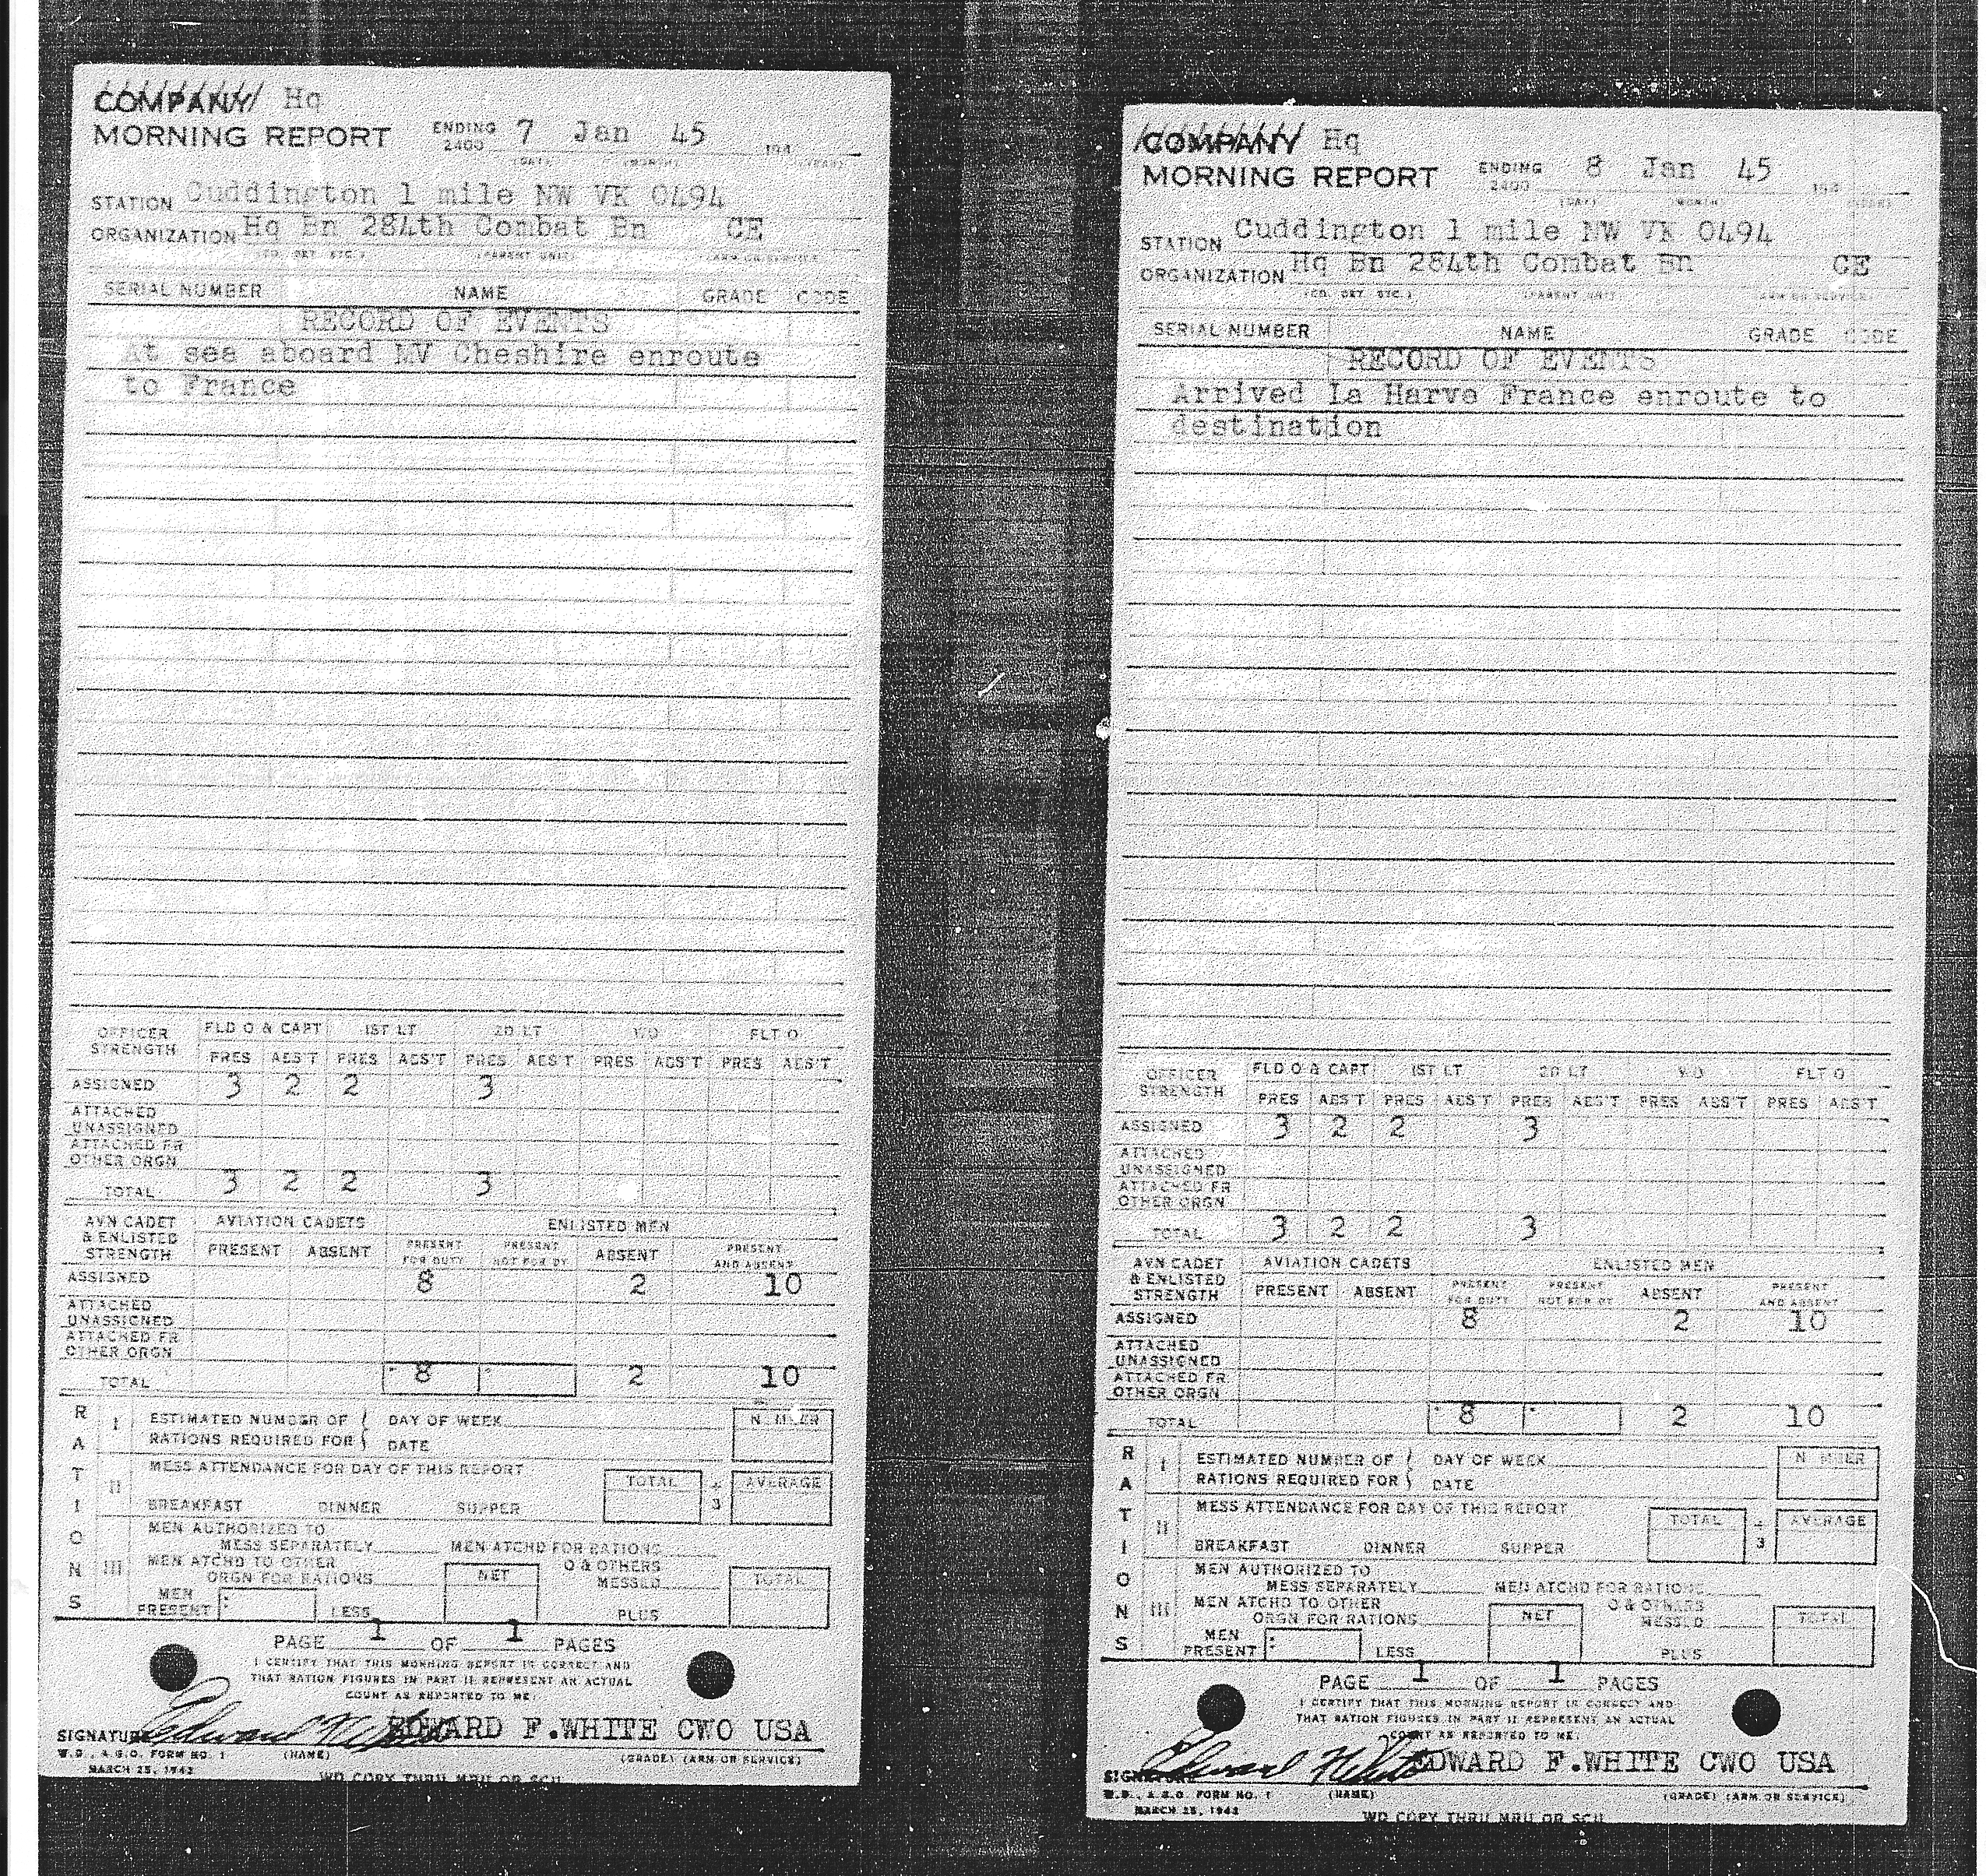 COMPANY Hq
MORNING REPORT ENDING 2400 7 Jan 45 194
(DAY) (MONTH) (YEAR)
STATION Cuddington 1 mile NW VK 0494
ORGANIZATION Hq Bn 284th Combat Bn CE
(CO. DET. ETC.) (PARENT UNIT) (ARM OR SERVICE)
SERIAL NUMBER NAME GRADE CODE
RECORD OF EVENTS
At sea aboard MV Cheshire enroute
to France
OFFICER STRENGTH FLD O & CAPT 1ST LT 2D LT WO FLT O
PRES ABS'T PRES ABS'T PRES ABS'T PRES ABS'T PRES ABS'T
ASSIGNED 3 2 2 3
ATTACHED
UNASSIGNED
ATTACHED FR
OTHER ORGN
TOTAL 3 2 2 3
AVN CADET & ENLISTED STRENGTH AVIATION CADETS ENLISTED MEN
PRESENT ABSENT PRESENT FOR DUTY PRESENT NOT FOR DY ABSENT PRESENT AND ABSENT
ASSIGNED 8 2 10
ATTACHED
UNASSIGNED
ATTACHED FR
OTHER ORGN
TOTAL 8 2 10
RATIONS
I ESTIMATED NUMBER OF DAY OF WEEK NUMBER
RATIONS REQUIRED FOR DATE
II MESS ATTENDANCE FOR DAY OF THIS REPORT TOTAL ÷ 3 AVERAGE
BREAKFAST DINNER SUPPER
III MEN AUTHORIZED TO
MESS SEPARATELY MEN ATCHD FOR RATIONS
MEN ATCHD TO OTHER O & OTHERS
ORGN FOR RATIONS NET MESSED TOTAL
MEN
PRESENT LESS PLUS
PAGE 1 OF 1 PAGES
I CERTIFY THAT THIS MORNING REPORT IS CORRECT AND
THAT RATION FIGURES IN PART II REPRESENT AN ACTUAL
COUNT AS REPORTED TO ME:
SIGNATURE Edward F White EDWARD F.WHITE CWO USA
W.D., A.G.O. FORM NO. 1 (NAME) (GRADE) (ARM OR SERVICE)
MARCH 25, 1943
WD COPY THRU MRU OR SCU
COMPANY Hq
MORNING REPORT ENDING 2400 8 Jan 45 194
(DAY) (MONTH) (YEAR)
STATION Cuddington 1 mile NW VK 0494
ORGANIZATION Hq Bn 284th Combat Bn CE
(CO. DET. ETC.) (PARENT UNIT) (ARM OR SERVICE)
SERIAL NUMBER NAME GRADE CODE
RECORD OF EVENTS
Arrived La Harve France enroute to
destination
OFFICER STRENGTH FLD O & CAPT 1ST LT 2D LT WO FLT O
PRES ABS'T PRES ABS'T PRES ABS'T PRES ABS'T PRES ABS'T
ASSIGNED 3 2 2 3
ATTACHED
UNASSIGNED
ATTACHED FR
OTHER ORGN
TOTAL 3 2 2 3
AVN CADET & ENLISTED STRENGTH AVIATION CADETS ENLISTED MEN
PRESENT ABSENT PRESENT FOR DUTY PRESENT NOT FOR DY ABSENT PRESENT AND ABSENT
ASSIGNED 8 2 10
ATTACHED
UNASSIGNED
ATTACHED FR
OTHER ORGN
TOTAL 8 2 10
RATIONS
I ESTIMATED NUMBER OF DAY OF WEEK NUMBER
RATIONS REQUIRED FOR DATE
II MESS ATTENDANCE FOR DAY OF THIS REPORT TOTAL ÷ 3 AVERAGE
BREAKFAST DINNER SUPPER
III MEN AUTHORIZED TO
MESS SEPARATELY MEN ATCHD FOR RATIONS
MEN ATCHD TO OTHER O & OTHERS
ORGN FOR RATIONS NET MESSED TOTAL
MEN
PRESENT LESS PLUS
PAGE 1 OF 1 PAGES
I CERTIFY THAT THIS MORNING REPORT IS CORRECT AND
THAT RATION FIGURES IN PART II REPRESENT AN ACTUAL
COUNT AS REPORTED TO ME:
SIGNATURE Edward F White EDWARD F.WHITE CWO USA
W.D., A.G.O. FORM NO. 1 (NAME) (GRADE) (ARM OR SERVICE)
MARCH 25, 1943
WD COPY THRU MRU OR SCU